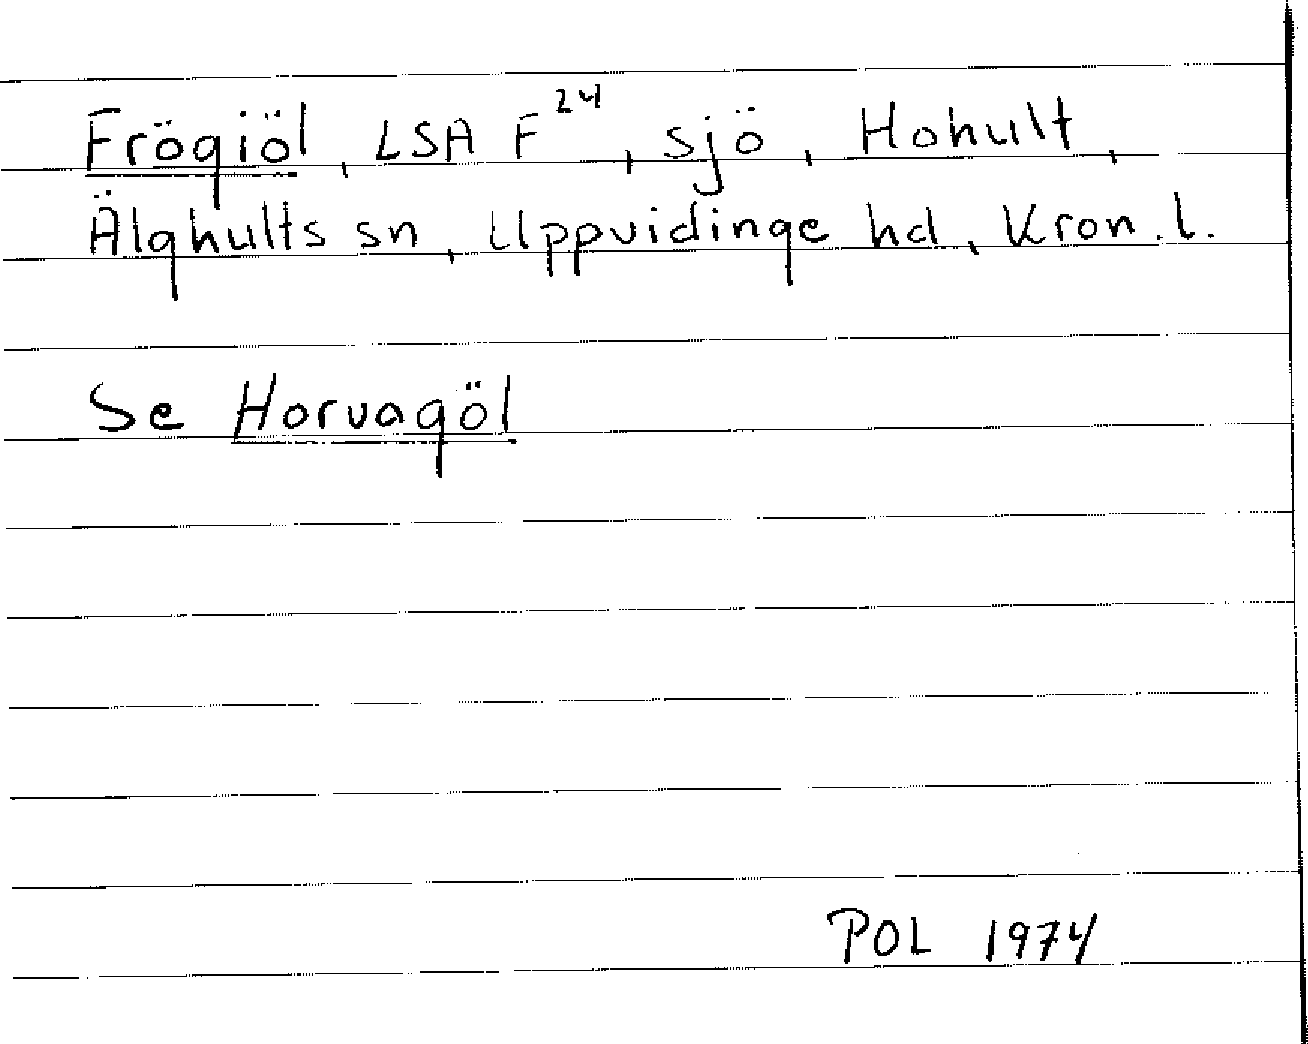 Frögiöl, LSA F²⁴, sjö, Hohult,
Älghults sn, Uppvidinge hd, Kron. l.
Se Horvagöl
POL 1974